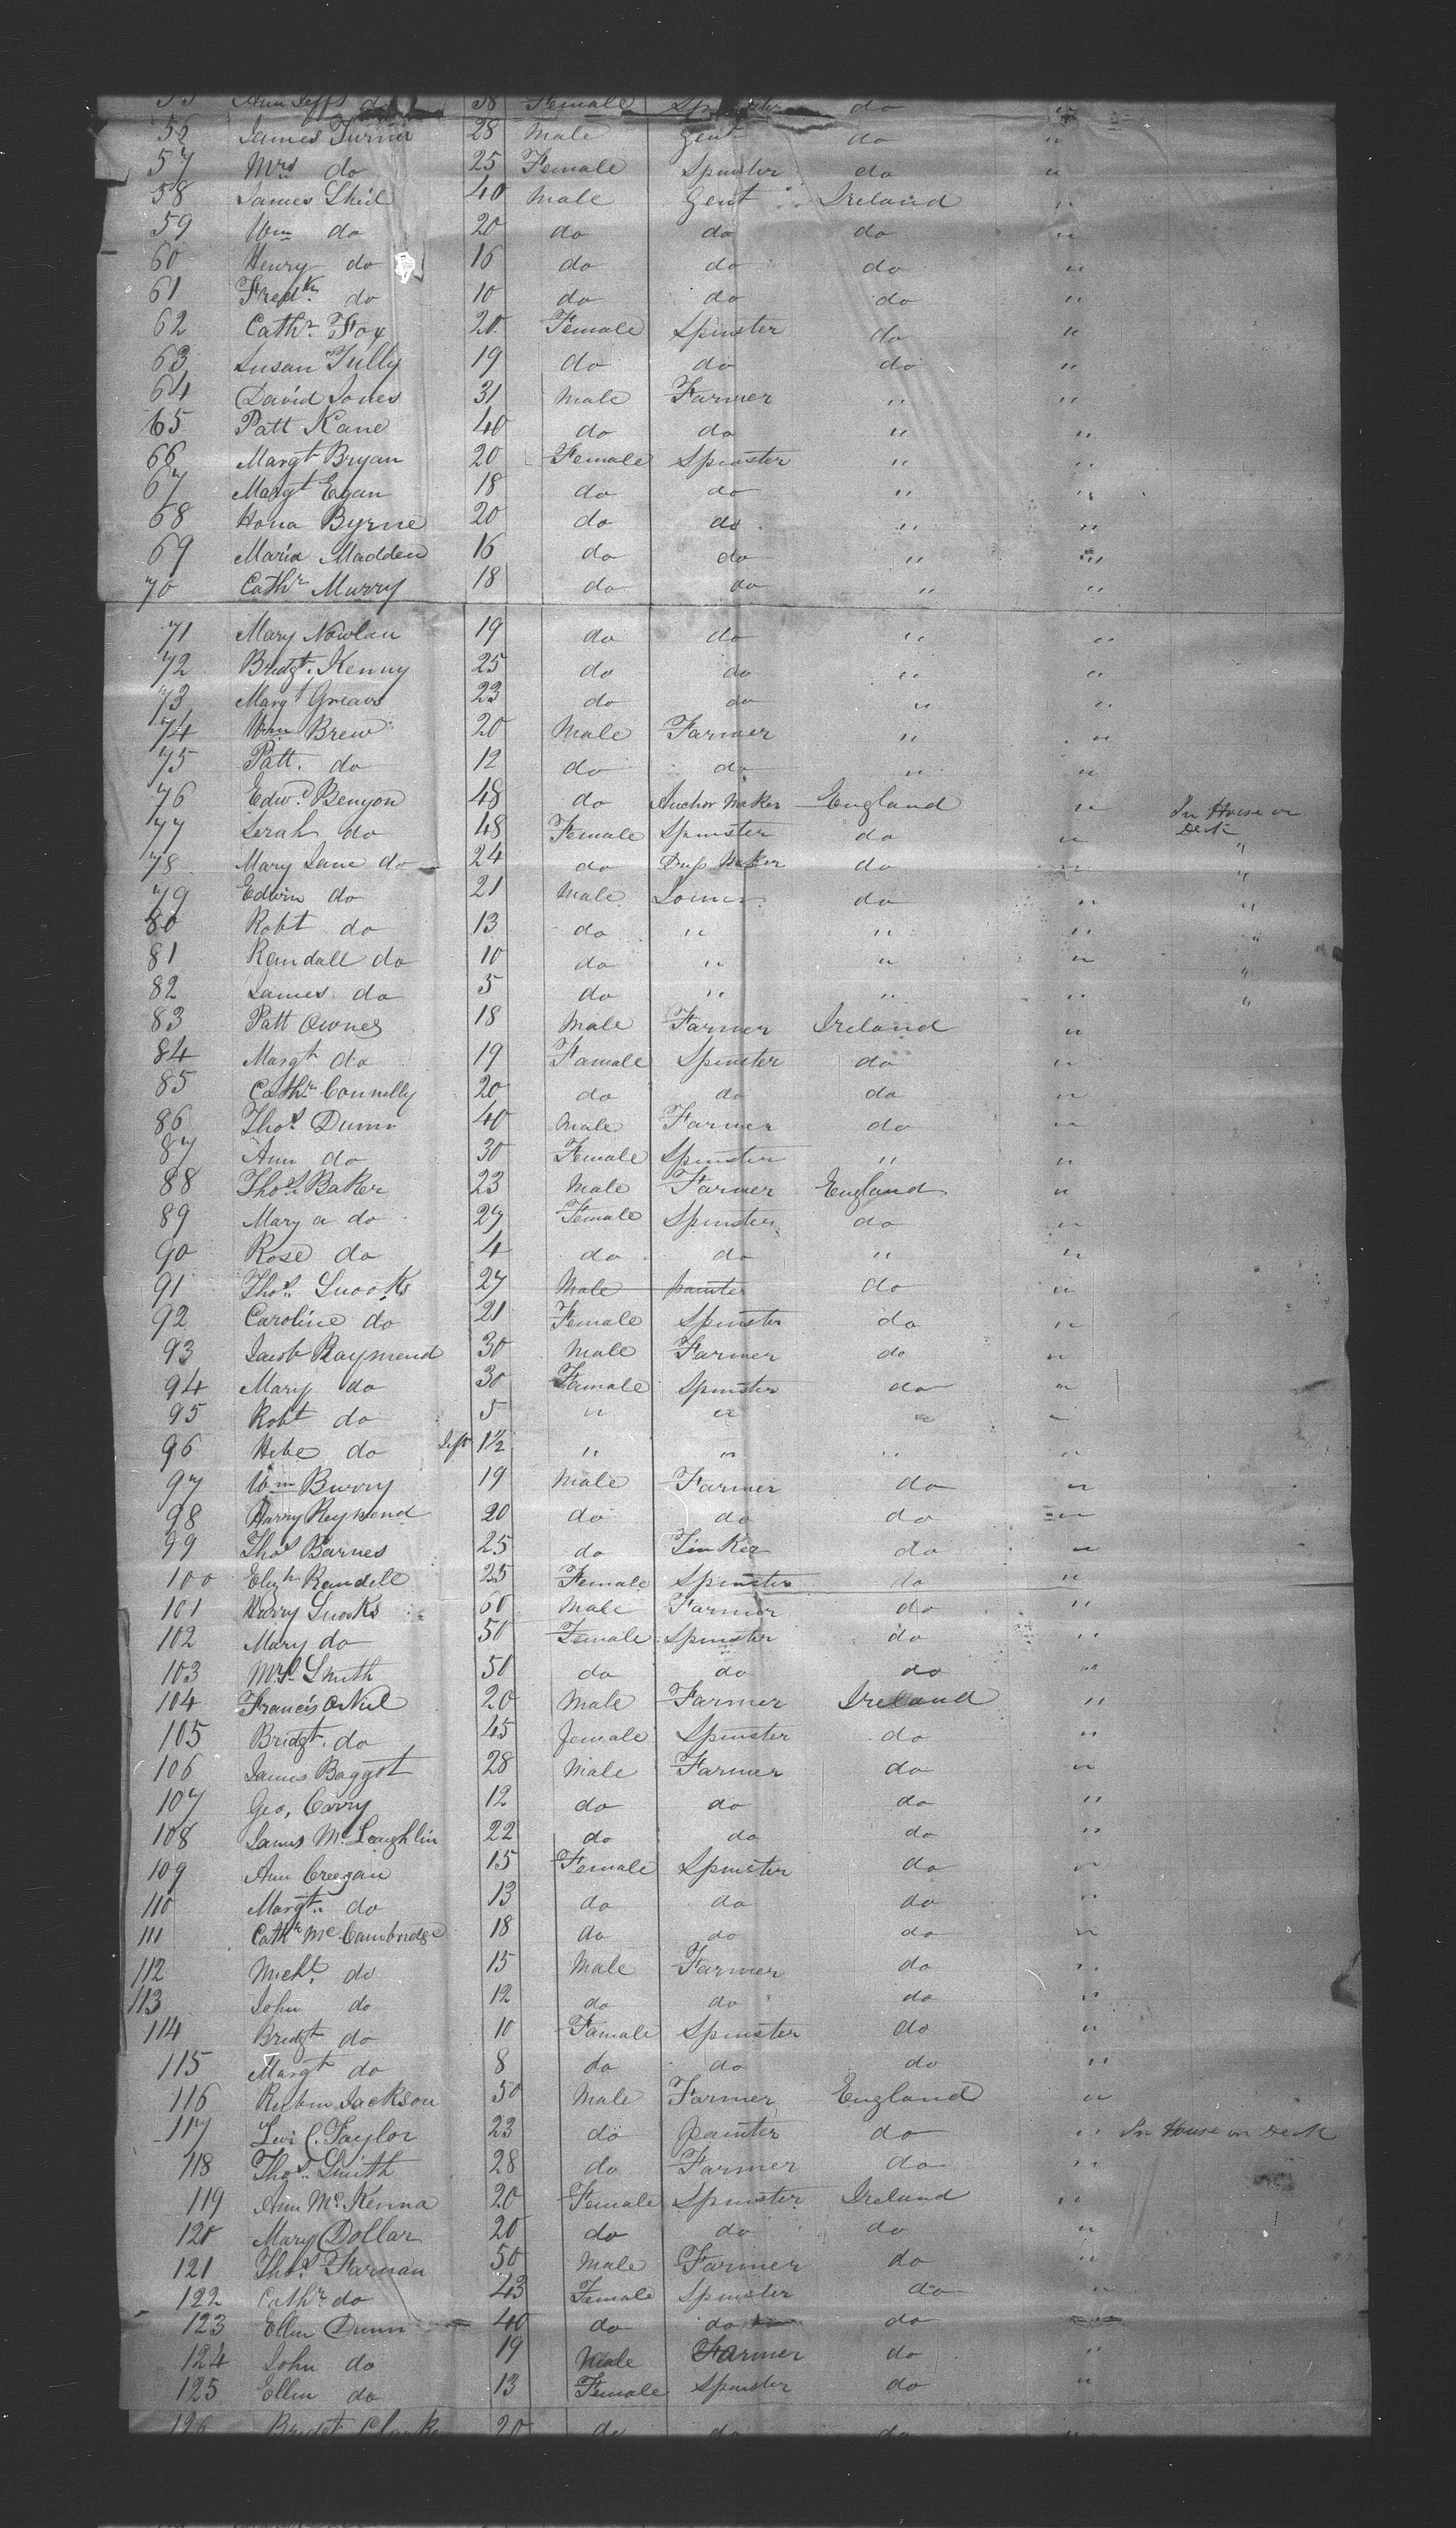 55 Ann Jeffs do 38 Female Spinster do "
56 James Turner 28 Male Gent do "
57 Mrs do 25 Female Spinster do "
58 James Sheil 40 Male Gent Ireland "
59 Wm do 20 do do do "
60 Henry do 16 do do do "
61 Fredk. do 10 do do do "
62 Cathr. Fox 20 Female Spinster do "
63 Susan Tully 19 do do do "
64 David Jones 31 Male Farmer " "
65 Patt Kane 40 do do " "
66 Margt Bryan 20 Female Spinster " "
67 Margt Egan 18 do do " "
68 Hona Byrne 20 do do " "
69 Maria Madden 16 do do " "
70 Cathr Murry 18 do do " "
71 Mary Nowlan 19 do do " "
72 Bridgt. Kenny 25 do do " "
73 Margt Greavs 23 do do " "
74 Wm Brew 20 Male Farmer " "
75 Patt. do 12 do do " "
76 Edwd. Benyon 48 do Anchor Maker England " In House on
77 Serah do 48 Female Spinster do " Deck "
78 Mary Jane do 24 do Dress Maker do " "
79 Edwin do 21 Male do " "
80 Robt do 13 do " " " "
81 Randall do 10 do " " " "
82 James do 5 do " " " "
83 Patt Ownes 18 Male Farmer Ireland "
84 Margt do 19 Famale Spinster do "
85 Cathr. Connelly 20 do do do "
86 Thos. Dunn 40 Male Farmer do "
87 Ann do 30 Female Spinster " "
88 Thos. Baker 23 Male Farmer England "
89 Mary a do 27 Female Spinster do "
90 Rose do 4 do do " "
91 Thos. Snooks 27 Male painter do "
92 Caroline do 21 Female Spinster do "
93 Jacob Raymend 30 Male Farmer do "
94 Mary do 30 Famale Spinster do "
95 Robt do 5 " " " "
96 Hebe do Inft 1½ " " " "
97 Wm Burry 19 Male Farmer do "
98 Harry Reymend 20 do do do "
99 Thos Barnes 25 do Tinker do "
100 Elizh Randell 25 Female Spinster do "
101 Harry Snooks 60 Male Farmer do "
102 Mary do 50 Female Spinster do "
103 Mrs. Smith 50 do do do "
104 Francis ONiel 20 Male Farmer Ireland "
105 Bridgt. do 45 female Spinster do "
106 James Baggot 28 Male Farmer do "
107 Geo, Carry 12 do do do "
108 James McLoughlin 22 do do do "
109 Ann Creegan 15 Female Spinster do "
110 Margt. do 13 do do do "
111 Cathr Mc Cambridge 18 do do do "
112 Michl. do 15 Male Farmer do "
113 John do 12 do do do "
114 Bridgt do 10 Famale Spinster do "
115 Margt do 8 do do do "
116 Rubin Jackson 50 Male Farmer England "
117 Levi C. Taylor 23 do painter do " In House on Deck
118 Thos. Smith 28 do Farmer do "
119 Ann McKenna 20 Female Spinster Ireland "
120 Mary Dollar 20 do do do "
121 Thos. Farnan 50 Male Farmer do "
122 Cathr do 43 Female Spinster do "
123 Ellen Dunn 40 do do do "
124 John do 19 Male Farmer do "
125 Ellen do 13 Female Spinster do "
126 Bridgt Clarke 20 do do do "